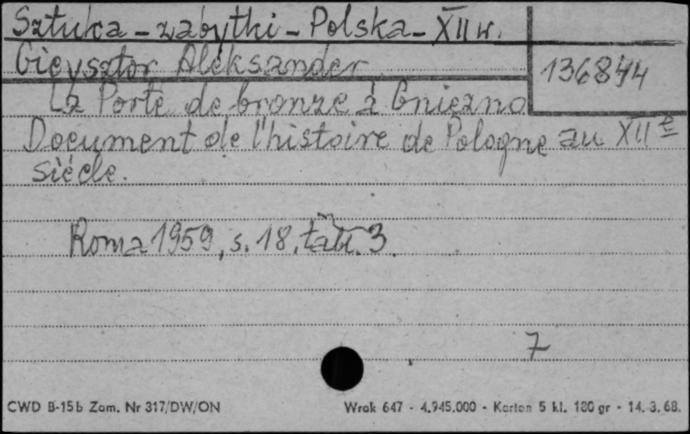 Sztuka - zabytki - Polska - XII w.
Gieysztor Aleksander
136844
La Porte de bronze à Gniezno
Document de l'histoire de Pologne au XII e
siècle.
Roma 1959, s. 18, tabl. 3.
7
CWD B-15b Zam. Nr 317/DW/ON Wrak 647 - 4.945.000 - Karton 5 kl. 180 gr - 14.3.68.